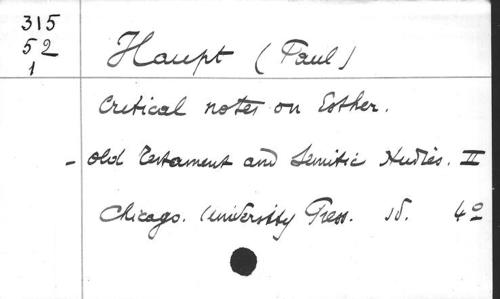 315
52
1
Haupt (Paul)
Critical notes on Esther.
- Old Testament and Semitic Studies. II
Chicago. University Press. 4º